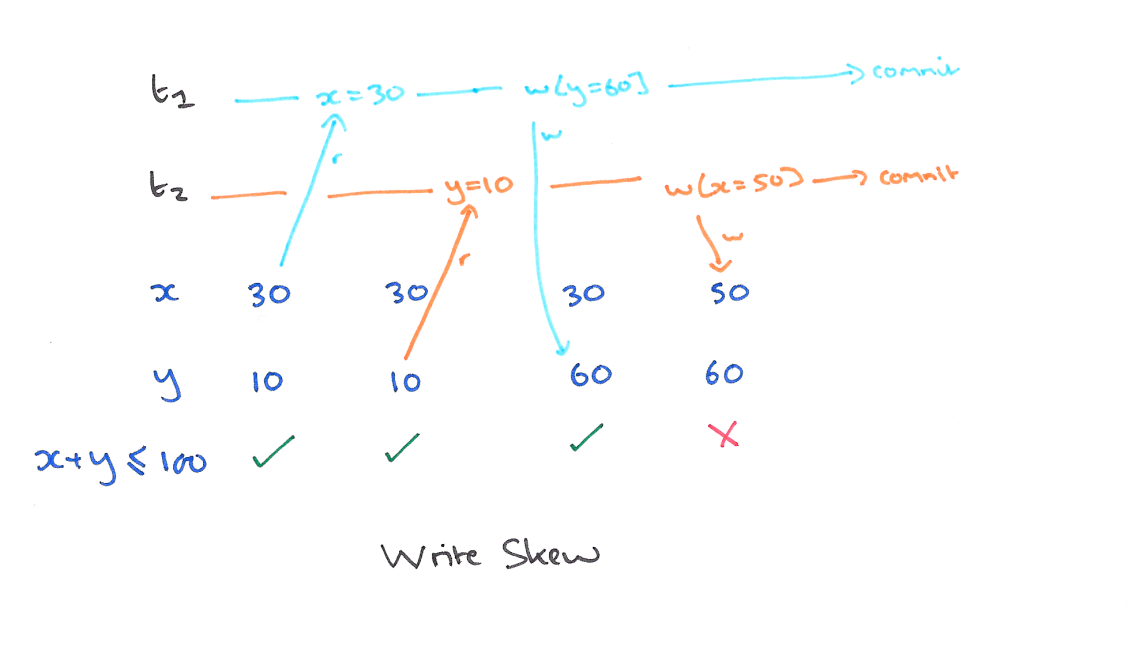 t1 x=30 w(y=60) commit
r w
t2 y=10 w(x=50) commit
r w
x 30 30 30 50
y 10 10 60 60
x+y≤100 ✓ ✓ ✓ ✗
Write Skew